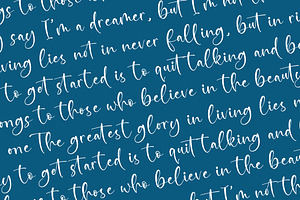 gs to those
y say I'm a dreamer, but I'm not th
iving lies not in never falling, but in ri
to got started is to quit talking and b
ongs to those who believe in the beaut
one The greatest glory in living lies n
y to got started is to quit talking and
to those who believe in the beaut
but I'm not th